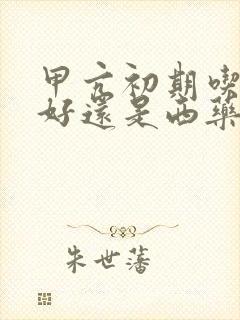 甲亢初期喫
好還是西藥
朱世藩